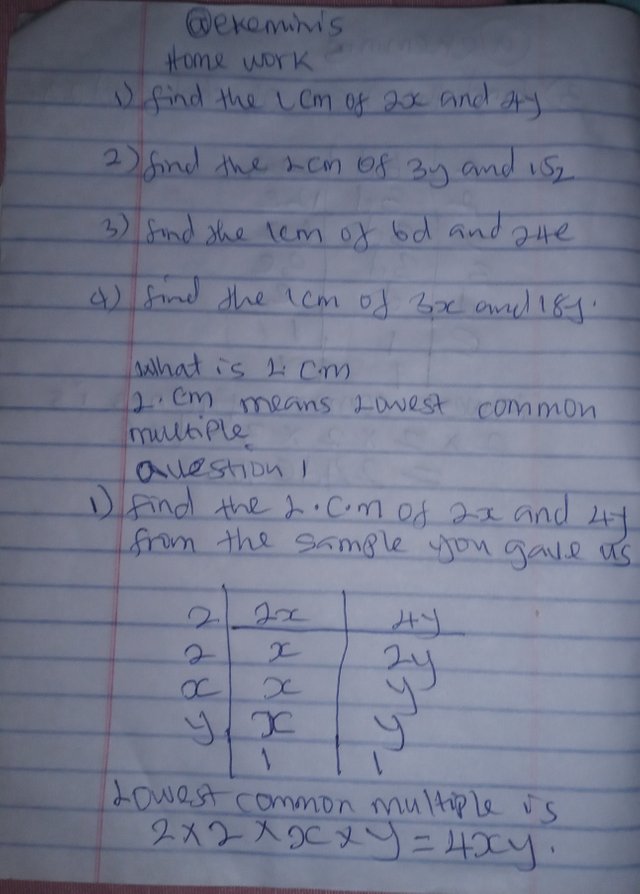 @ekeminis
Home work
1) find the lcm of 2x and 4y
2) find the Lcm of 3y and 15z
3) find the lcm of 6d and 24e
4) find the lcm of 3x and 18y.
What is L.C.m
L.Cm means Lowest common
multiple.
Question 1
1) find the L.C.m of 2x and 4y
from the sample you gave us
2 2x 4y
2 x 2y
x x y
y x y
1 1
Lowest common multiple is
2 x 2 x x x y = 4xy.